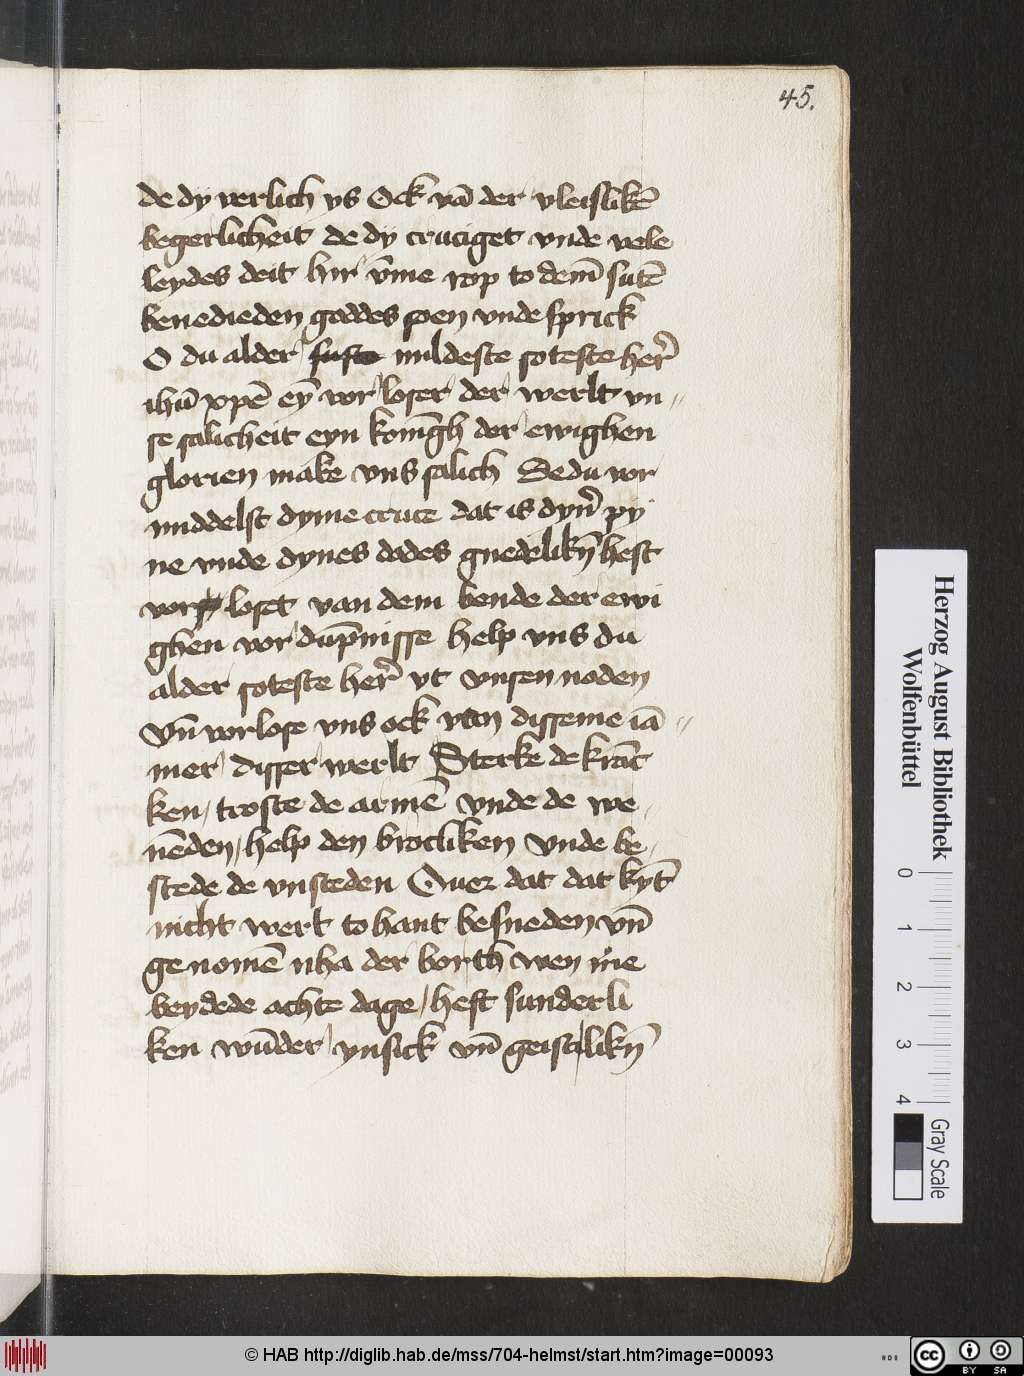 45.
de dy verlich ys Ock vā der vleislikē
begerlicheit de dy cruciget vnde vele
leydes deit hir v̄me rop to dem̄ sutē
benedieden goddes soen vnde sprick
O du alder mildeste soteste her̄
ihū xpē eȳ vorloser der werlt vn〃
se salicheit eyn konīgh der ewighen
glorien make vns salich De du vor
middelst dyme cruce dat is dyn̄ py
ne vnde dynes dodes gnedelikn̄ hest
vor loset van dem bende der ewi
ghen vor dūpnisse help vns du
alder soteste her̄ vt vnsen noden
Vn̄ vorlose vns ock van disseme iā〃
mer disser werlt Sterke de krāc
ken, troste de armē vnde de we〃
nēden, help den brocliken vnde be〃
stede de vnsteden Quer dat dat kyt̄
nicht wert to hant besneden vn̄
genomē nha der borth wen me
beydede achte dage, heft sunderli
ken wūder ynsick vn̄ geistlikn̄
Herzog August Bibliothek
Wolfenbüttel
0 1 2 3 4
Gray Scale
© HAB http://diglib.hab.de/mss/704-helmst/start.htm?image=00093
HAB
cc BY SA